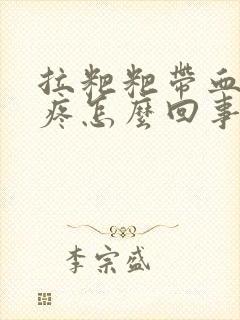 拉粑粑帶血
疼怎麼回事
李宗盛